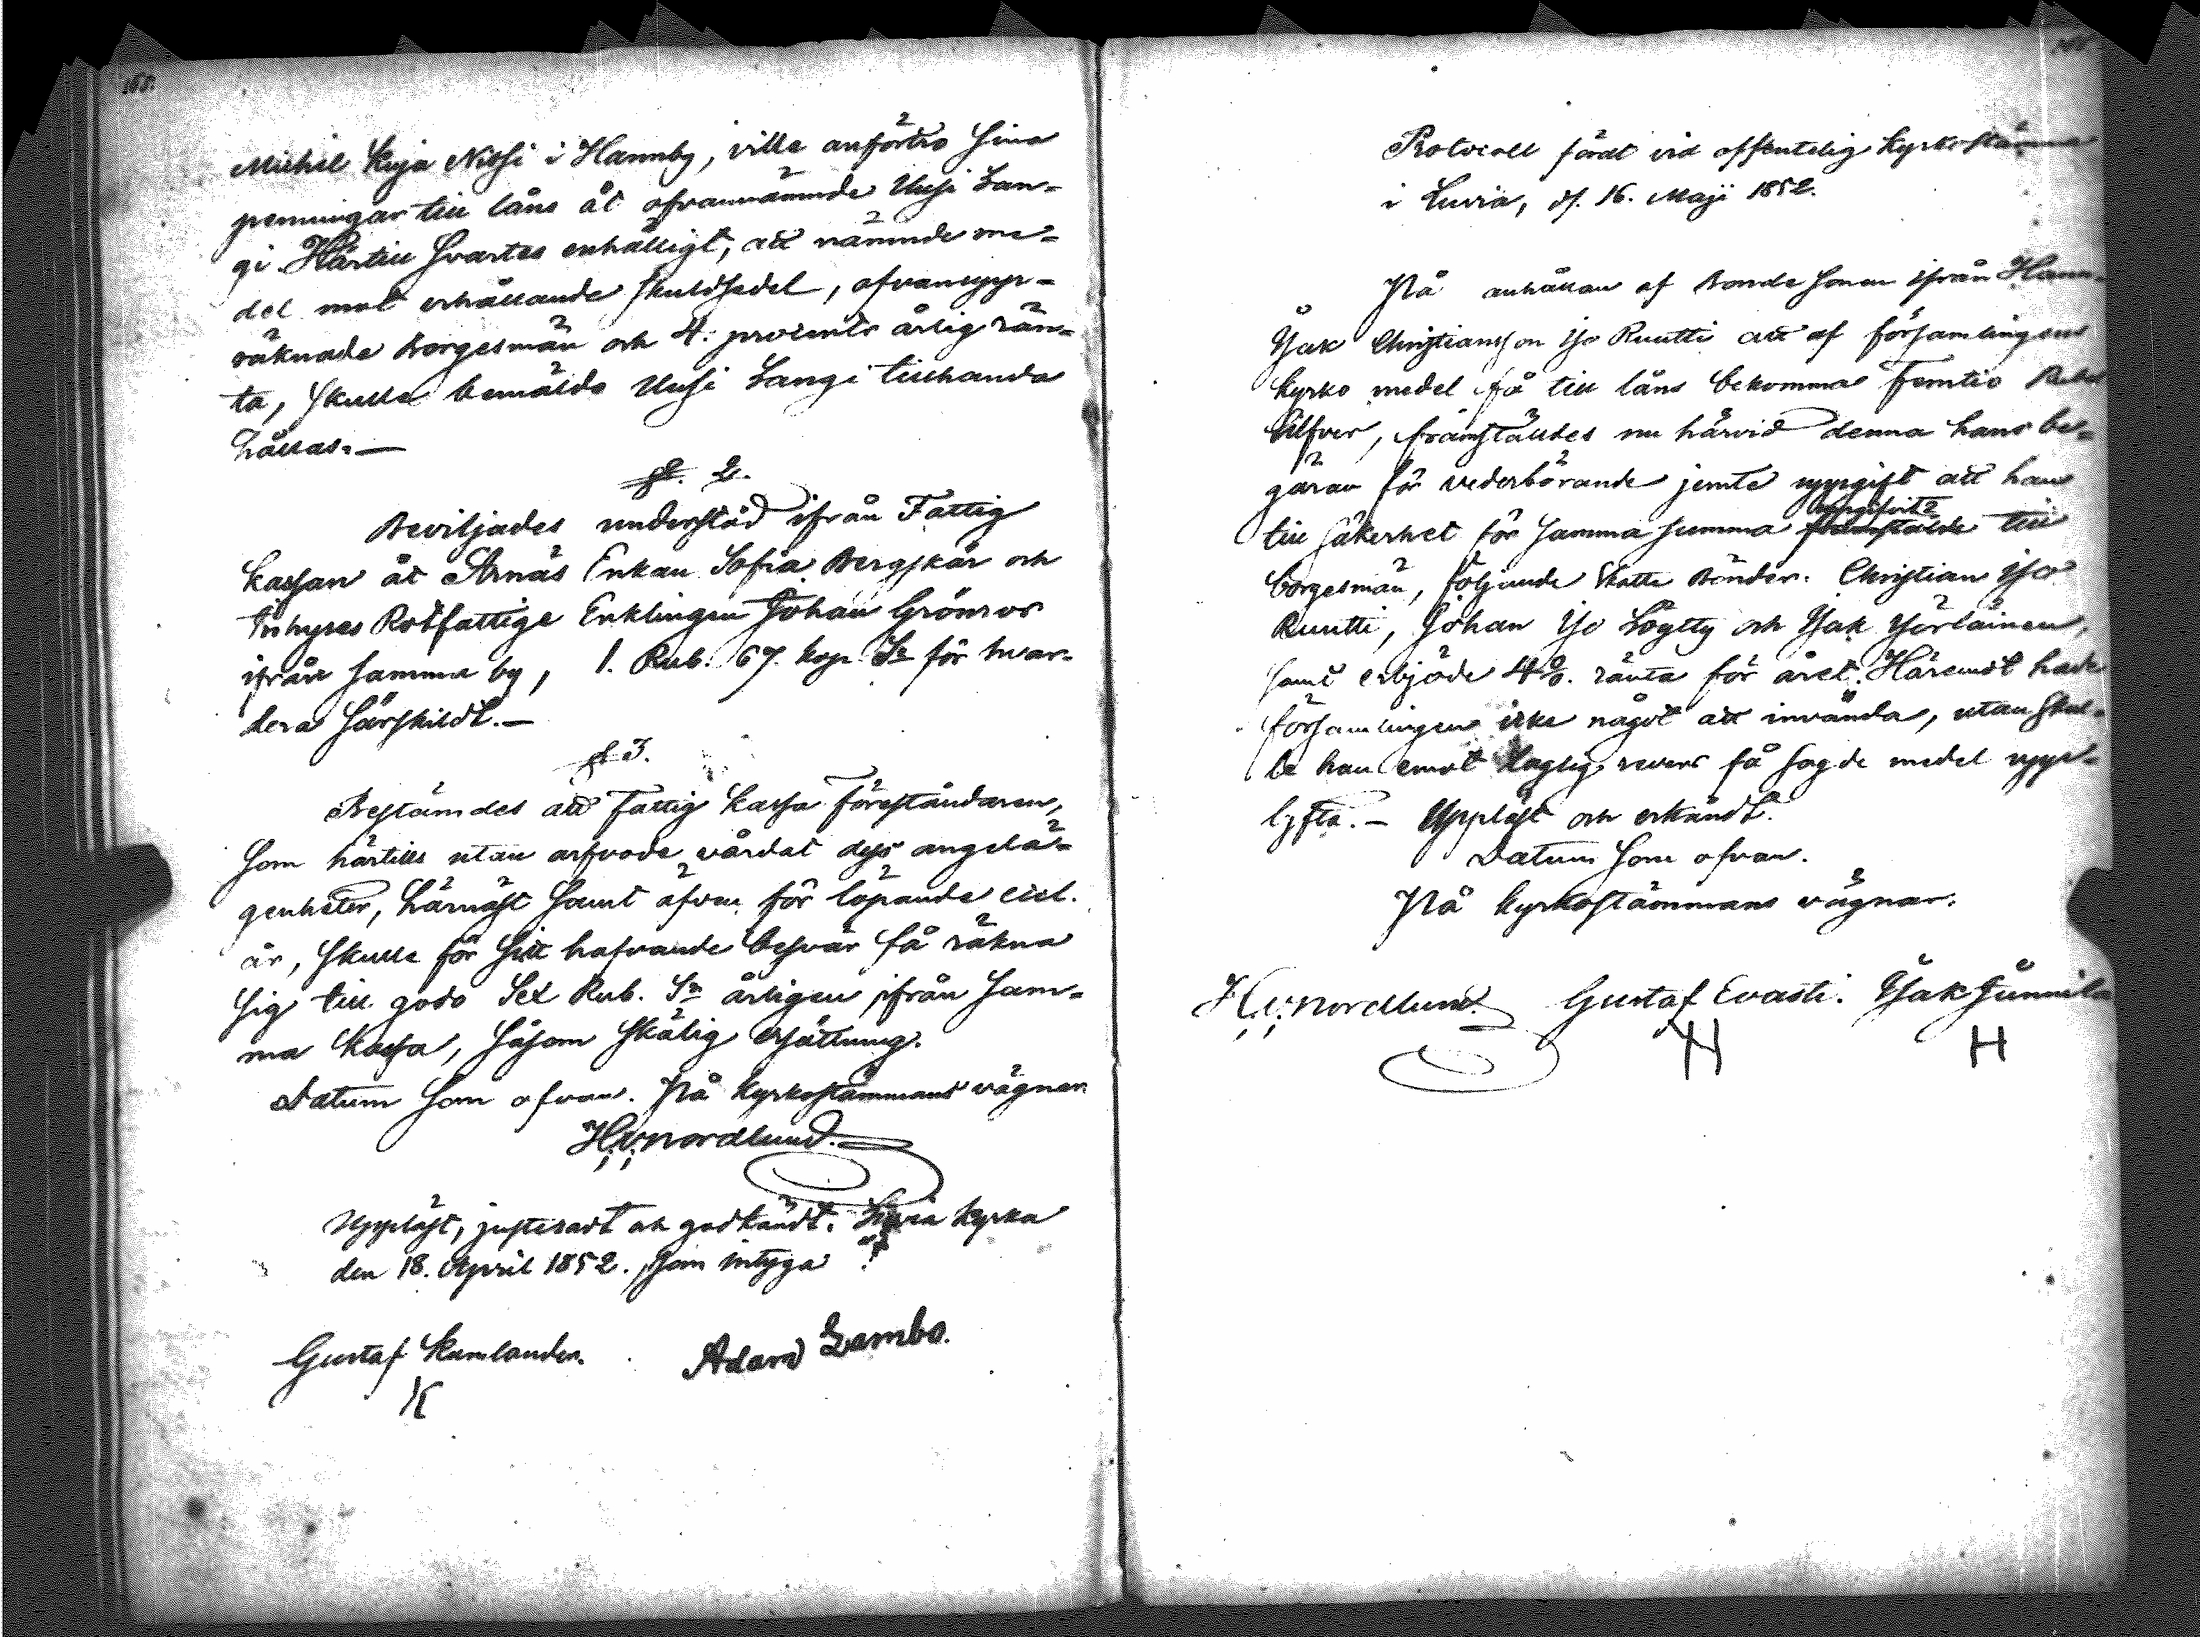 165.
Michel Kuja Nissi i Hannby, ville anförtro sina
penningar till låns åt ofvannämnde Uusi Lan-
gi. Härtill svartes enhälligt, att nämnde me-
del mot erhållande skuldsedel, ofvanupp-
räknade Borgesmän och 4. procents årlig rän-
ta, skulle bemälde Uusi Langi tillhanda
hållas.—
§. 2.
Beviljades understöd ifrån Fattig
kassan åt Arnäs Enkan Sofia Bergskär och
Inhyses Rotfattige Enklingen Johan Grönros
ifrån samma by, 1. Rub. 67. kop. Sr för hvar-
dera särskildt.—
§ 3.
Bestämdes att Fattig kassa Föreståndaren,
som härtills utan arfvode vårdat dess angelä-
genheter, härnäst samt äfven för löpande eccl.
år, skulle för sitt hafvande besvär få räkna
sig till godo Sex Rub. Sr årligen ifrån sam-
ma kassa, såsom skälig ersättning.
Datum som ofvan. På kyrkostämmans vägnar
H. V. Nordlund.
Uppläst, justeradt och godkändt. Luvia kyrka
den 18. April 1852. som intyga
Gustaf Kumlander. Adam Lambo.
Protocoll fördt vid offentelig kyrkostämma
i Luvia, d. 16. Maji 1852.
På anhållan af Bonde sonen ifrån Hann-
Isak Christiansson Iso Ruutti att af församlingens
kyrko medel få till låns bekomma Femtio Rubel
Silfver, framställdes nu härvid denna hans be-
gäran för vederbörande jemte uppgift att han
till säkerhet för samma summa uppgifvit till
borgesmän, följande Skatte Bönder. Christian Iso
Ruutti, Johan Iso Löytty och Isak Yörläinen,
samt erbjöde 4%. ränta för året. Häremot hade
församlingen icke något att invända, utan skul-
le han emot laglig revers få sagde medel upp-
lyfta.— Uppläst och erkändt.
Datum som ofvan.
På kyrkostämmans vägnar.
H. V. Nordlund. Gustaf Evasti. Isak Junnila
H H